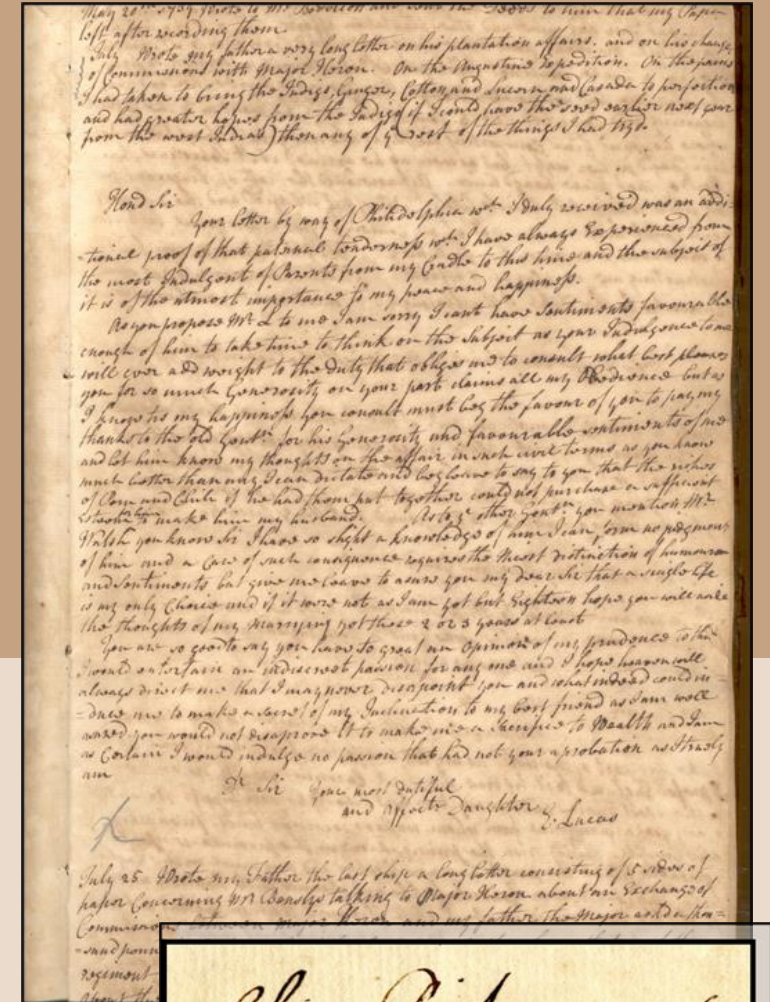 May 20th 1739 Wrote to Mr and the Deeds to him that my Papa
left after recording them.
July Wrote my father a very long letter on his plantation affairs. and on his change
of Commissions with Major Heron. On the Augustine Expedition. On the pains
I had taken to bring the Indigo, Ginger, Cotton and Lucern and Casada to perfection
and had greater hopes from the Indigo (if I could have the seed earlier next year
from the west Indias) then any of ye rest of the things I had tryd.
Hond Sir
Your letter by way of Philidelphia wch I duly received was an addi-
-tional proof of that paternal tenderness wch I have always Experienced from
the most Indulgent of Parents from my Cradle to this time and the subject of
it is of the utmost importance to my peace and happiness.
As you propose Mr L to me I am sorry I can't have Sentiments favourable
enough of him to take time to think on the Subject as your Indulgence to me
will ever add weight to the duty that obliges me to consult what best pleases
you for so much Generosity on your part claims all my Obedience but as
I know tis my happiness you consult must beg the favour of you to pay my
thanks to the old Gentn for his Generosity and favourable sentiments of me
and let him know my thoughts on the affair in such civil terms as you know
much better than any I can dictate and beg leave to say to you that the riches
of Peru and Chili if he had them put together could not purchase a sufficient
Esteem for him to make him my husband. As to ye other Gentn you mention Mr
Walsh you know Sir I have so slight a knowledge of him I can form no judgment
of him and a Case of such consiquence requires the Nicest distinction of humours
and Sentiments but give me leave to assure you my dear Sir that a single life
is my only Choice and if it were not as I am yet but Eighteen hope you will aside
the thoughts of my marrying yet these 2 or 3 years at least
You are so good to say you have so great an Opinion of my prudence to think
I would entertain an indiscreet passion for any one and I hope heaven will
always direct me that I may never disapoint you and what indeed could in-
-duce me to make a secret of my Inclination to my best friend as I am well
aware you would not disaprove it to make me a Sacrifice to Wealth and I am
as Certain I would indulge no passion that had not your aprobation as I truely
am
Dr Sir Your most dutiful
and affecte Daughter E. Lucas
X
July 25 Wrote my Father the last ship a long letter consisting of 5 sides of
paper Concerning Mr talking to Major Heron about an Exchange of
Commissions between major Heron and my father the Major asked a thou-
-sand poun
regiment
about the